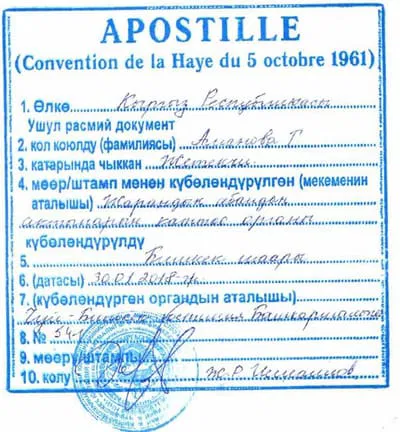 APOSTILLE
(Convention de la Haye du 5 octobre 1961)
1. Өлкө Кыргыз Республикасы
Ушул расмий документ
2. кол коюлду (фамилиясы) Аманова Г
3. катарында чыккан Жетекчи
4. мөөр/штамп менен күбөлөндүрүлгөн (мекеменин
аталышы) Жарандык абалдын
актыларын каттоо органы
күбөлөндүрүлдү
5. Бишкек шаары
6. (датасы) 30.01.2018-ж.
7. (күбөлөндүргөн органдын аталышы)
Чүй-Бишкек юстиция башкармалыгы
8. №
9. мөөрү/штампы
10. колу